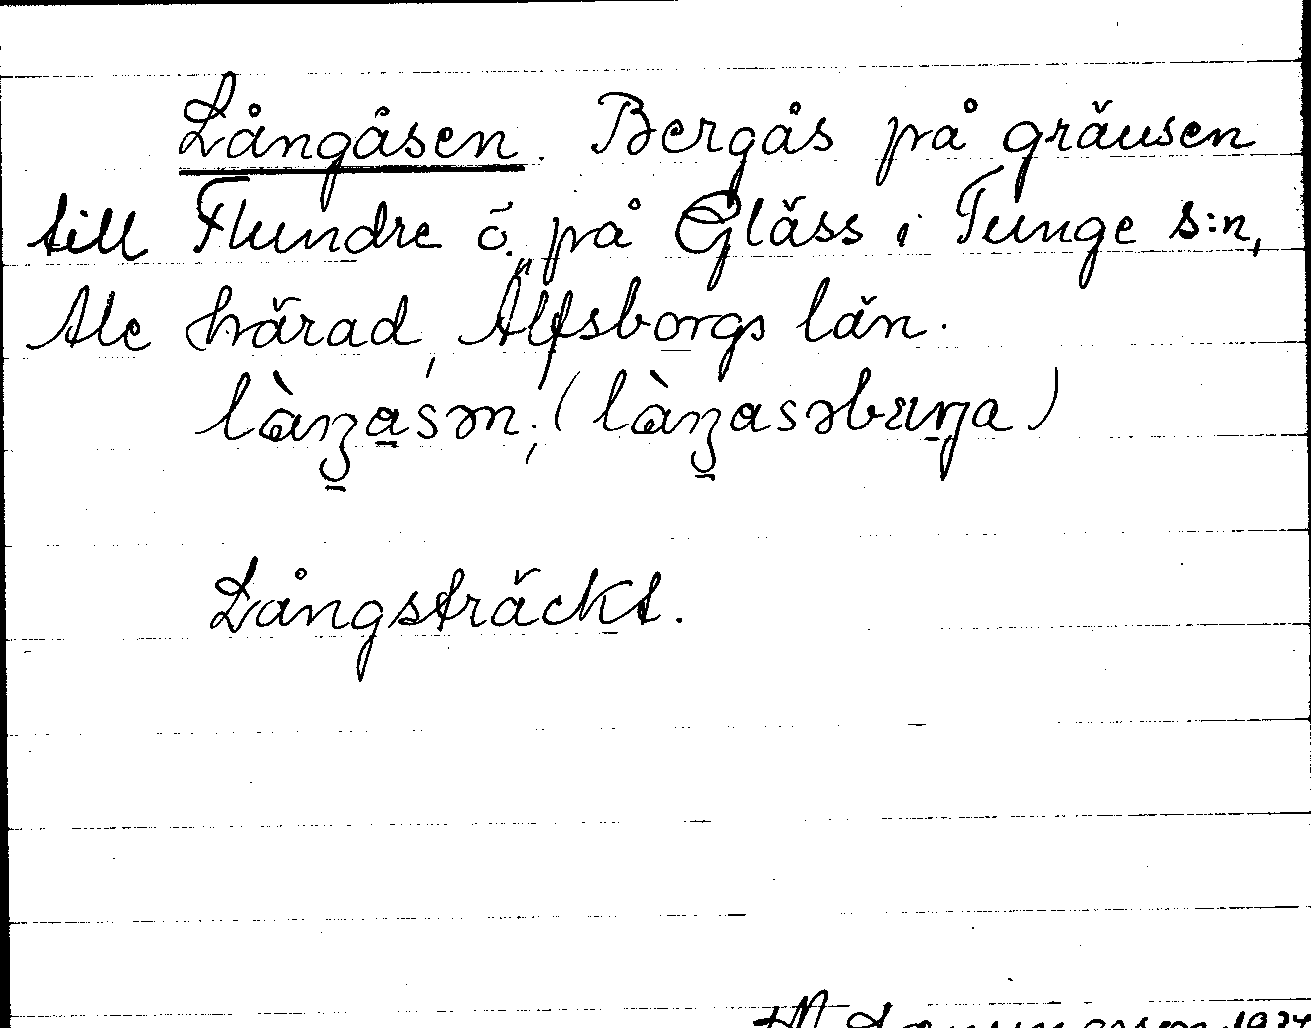 Långåsen. Bergås på gränsen
till Flundre ö. på Gläss i Tunge s:n,
Ale härad, Älfsborgs län.
làŋasən; (làŋasəbærɳa)
Långsträckt.